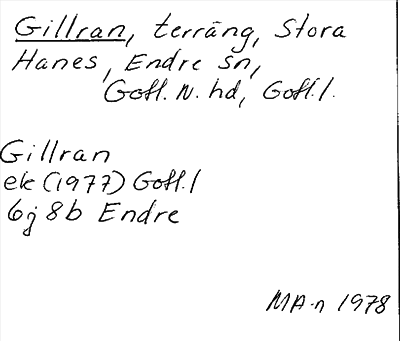 Gillran, terräng, Stora
Hanes, Endre sn,
Gotl. N. hd, Gotl. l.
Gillran
ek (1977) Gotl. l
6j 8b Endre
MA-n 1978